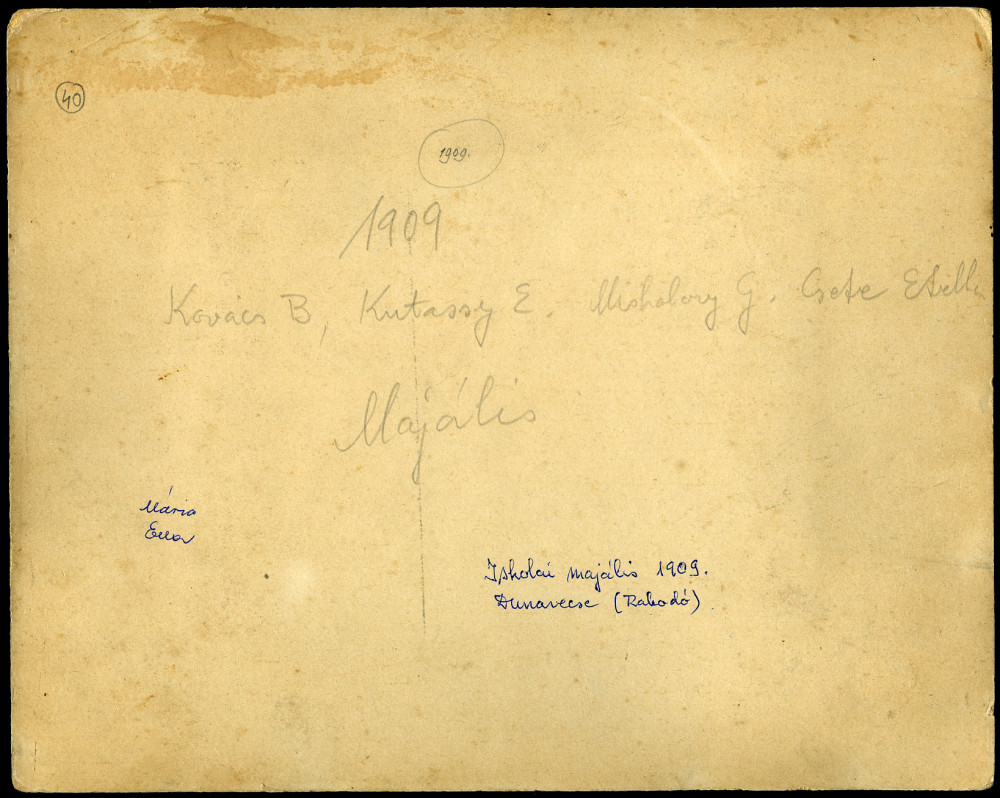 40
1909.
1909
Kovács B, Kutassy E. Miskolczy G. Csete Etelka
Majális
Mária
Ella
Iskolai majális 1909.
Dunavecse (Rakodó).